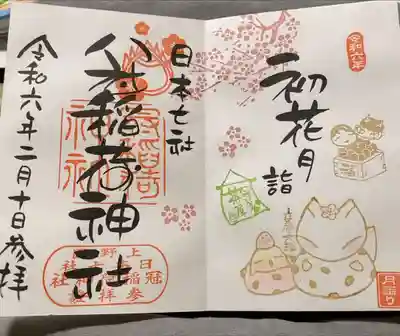 令和六年
初花月
詣
月詣り
日本七社
冠稲荷神社
令和六年二月十日参拝